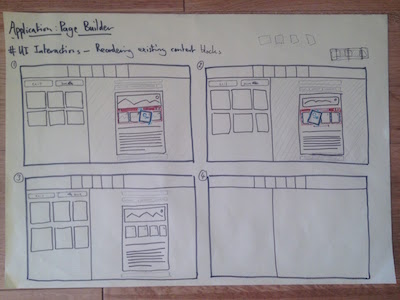 Application: Page Builder
# UI Interactions – Reordering existing content blocks
1
2
3
4